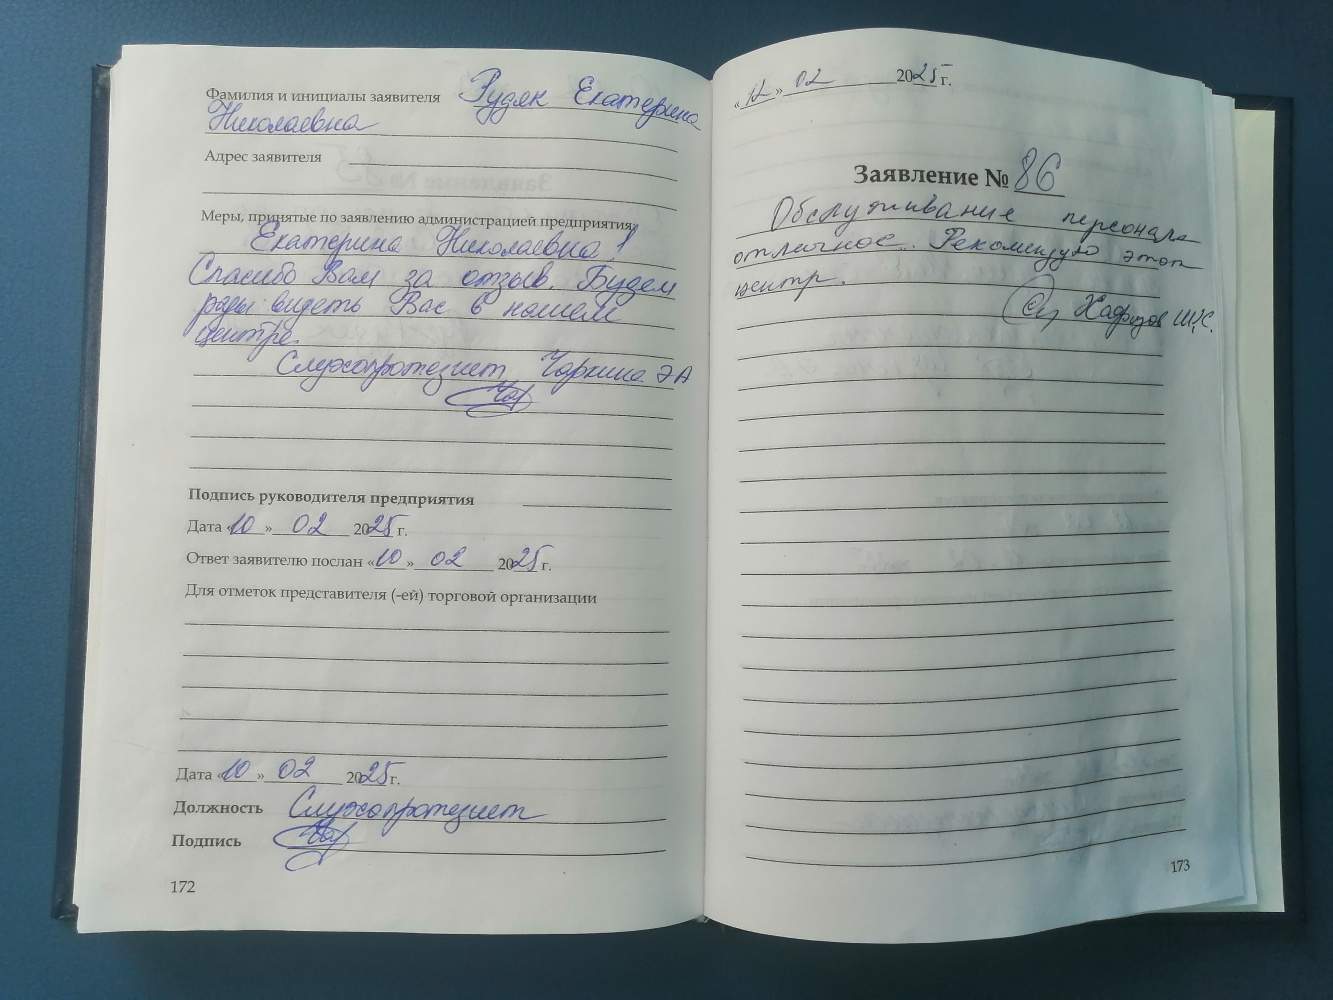 Фамилия и инициалы заявителя Рудяк Екатерина
Николаевна
Адрес заявителя
Меры, принятые по заявлению администрацией предприятия:
Екатерина Николаевна!
Спасибо Вам за отзыв. Будем
рады видеть Вас в нашем
центре.
Слухопротезист Чаркина Э А
Подпись руководителя предприятия
Дата «10» 02 2025 г.
Ответ заявителю послан «10» 02 2025 г.
Для отметок представителя (-ей) торговой организации
Дата «10» 02 2025 г.
Должность Слухопротезист
Подпись
172
«12» 02 2025 г.
Заявление № 86
Обслуживание персонала
отличное. Рекомендую этот
центр.
Хафизов Ш.С.
173